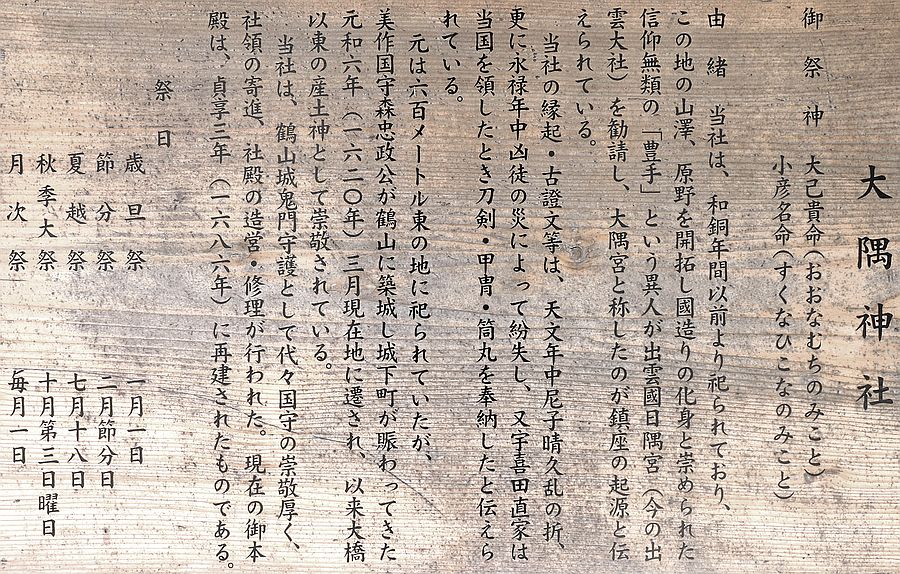 大隅神社
御祭神　大己貴命(おおなむちのみこと)
小彦名命(すくなひこなのみこと)
由　緒　当社は、和銅年間以前より祀られており、
この地の山澤、原野を開拓し國造りの化身と崇められた
信仰無類の「豊手」という異人が出雲國日隅宮（今の出
雲大社）を勧請し、大隅宮と称したのが鎮座の起源と伝
えられている。
当社の縁起・古證文等は、天文年中尼子晴久乱の折、
更に永禄年中凶徒の災によって紛失し、又宇喜田直家は
当国を領したとき刀剣・甲冑・筒丸を奉納したと伝えら
れている。
元は六百メートル東の地に祀られていたが、
美作国守森忠政公が鶴山に築城し城下町が賑わってきた
元和六年（一六二〇年）三月現在地に遷され、以来大橋
以東の産土神として崇敬されている。
当社は、鶴山城鬼門守護として代々国守の崇敬厚く、
社領の寄進、社殿の造営・修理が行われた。現在の御本
殿は、貞享三年（一六八六年）に再建されたものである。
祭　日
歳旦祭　一月一日
節分祭　二月節分日
夏越祭　七月十八日
秋季大祭　十月第三日曜日
月次祭　毎月一日